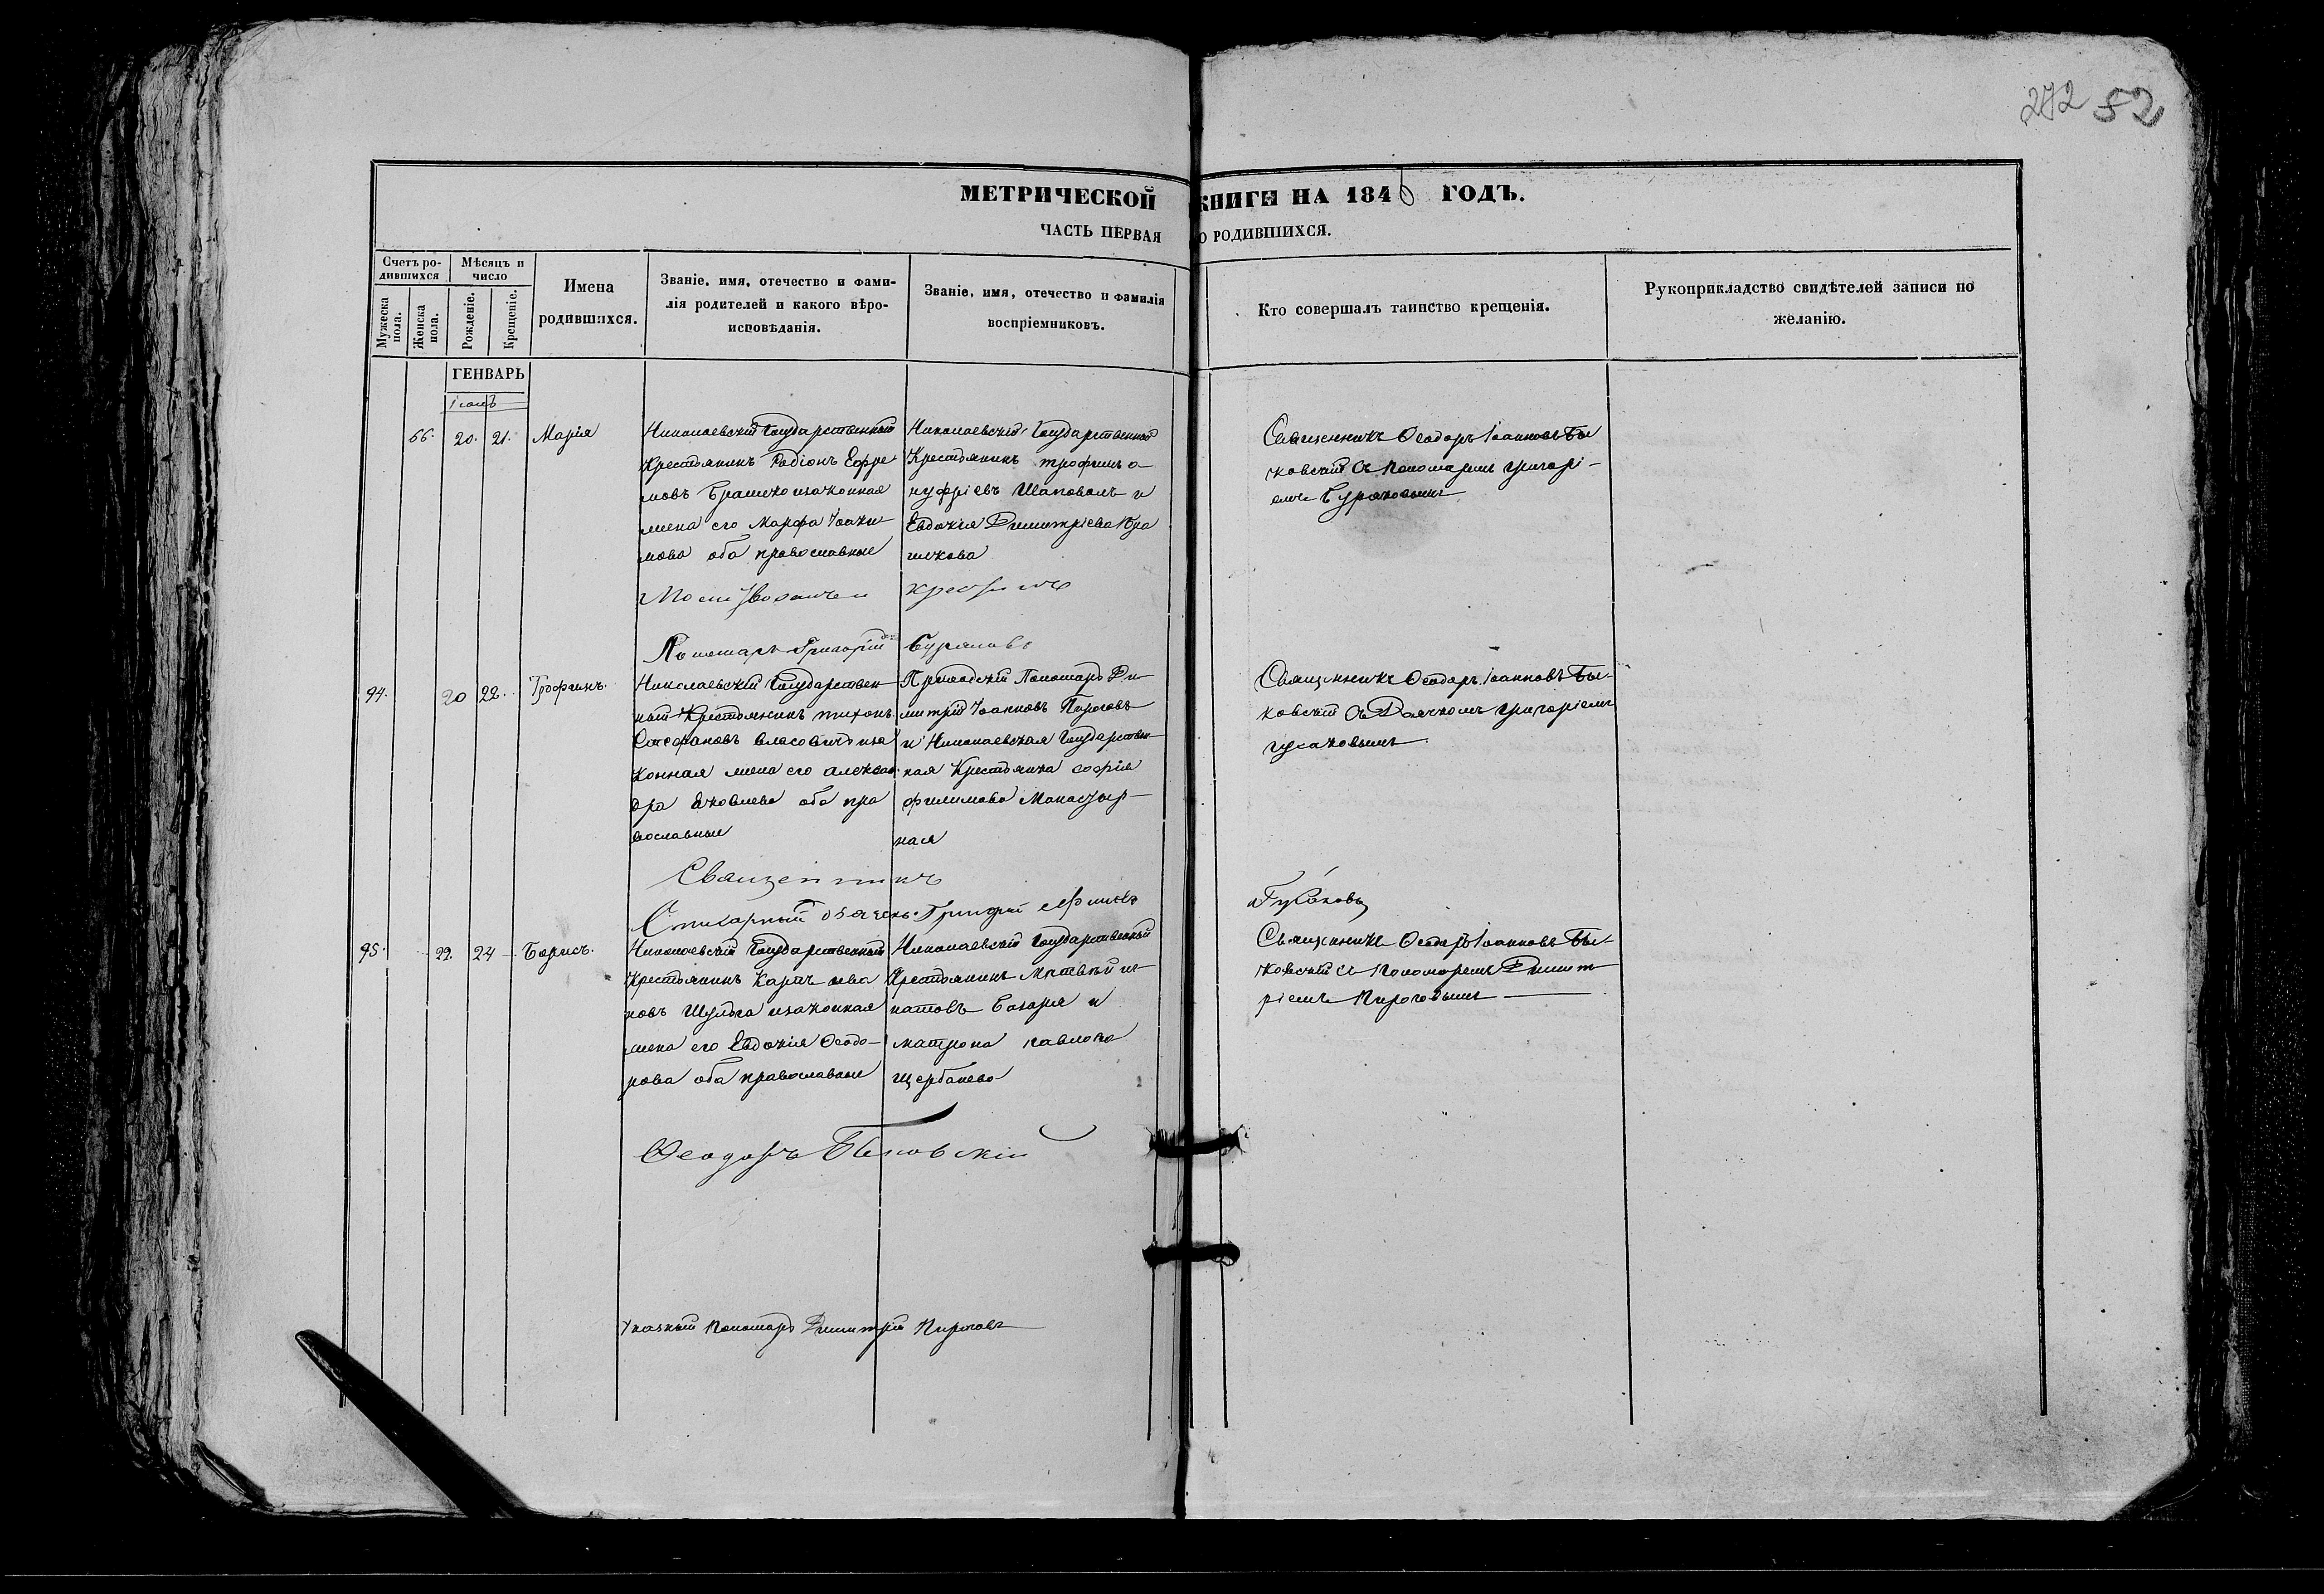 272 52
МЕТРИЧЕСКОЙ КНИГИ НА 1846 ГОДЪ.
ЧАСТЬ ПЕРВАЯ О РОДИВШИХСЯ.
Счетъ ро-
дившихся
Мужеска пола.
Женска пола.
Мѣсяцъ и
число
Рожденіе.
Крещеніе.
Имена
родившихся.
Званіе, имя, отечество и фами-
лія родителей и какого вѣро-
исповѣданія.
Званіе, имя, отечество и фамилія
воспріемниковъ.
Кто совершалъ таинство крещенія.
Рукоприкладство свидѣтелей записи по
желанію.
ГЕНВАРЬ
66. 20. 21. Марія
Николаевскій Государственный
Крестьянинъ Родіонъ Ефре
мовъ изаконная
жена его Марфа Іоаки
мова оба православные
Николаевскій Государственный
Крестьянинъ трофимъ о-
нуфріевъ Шаповалъ и
Евдокія Димитріева
Священникъ Ѳеодоръ Іоанновъ Бы
ковскій съ Пономаремъ григорі-
емъ Бураковымъ
Пономарь Григорій Бураковъ
94. 20 22. Трофимъ.
Николаевскій Государствен
ный Крестьянинъ тихонъ
Стефановъ иза
конная жена его алексан
дра Яковлева оба пра
вославные
Приходскій Пономарь Ди
митрій Іоанновъ Пироговъ
и Николаевская Государствен
ная Крестьянка софія
филимова Монастыр-
ная
Священникъ Ѳеодоръ Іоанновъ Бы-
ковскій съ Дьячкомъ григоріемъ
гусаковымъ
Священникъ
Стихарный дьячекъ Григорій
95. 22. 24 Борисъ.
Николаевскій Государственный
Крестьянинъ Карпъ ива
новъ Шульга изаконная
жена его Евдокія Ѳеодо-
рова оба православные
Николаевскій Государственный
Крестьянинъ Матвѣй иг
натовъ и
матрона павлова
щербакова
Священникъ Ѳеодоръ Іоанновъ Бы-
ковскій съ Пономаремъ Димит
ріемъ Пироговымъ
Ѳеодоръ Быковскій
Указный Пономарь Димитрій Пироговъ